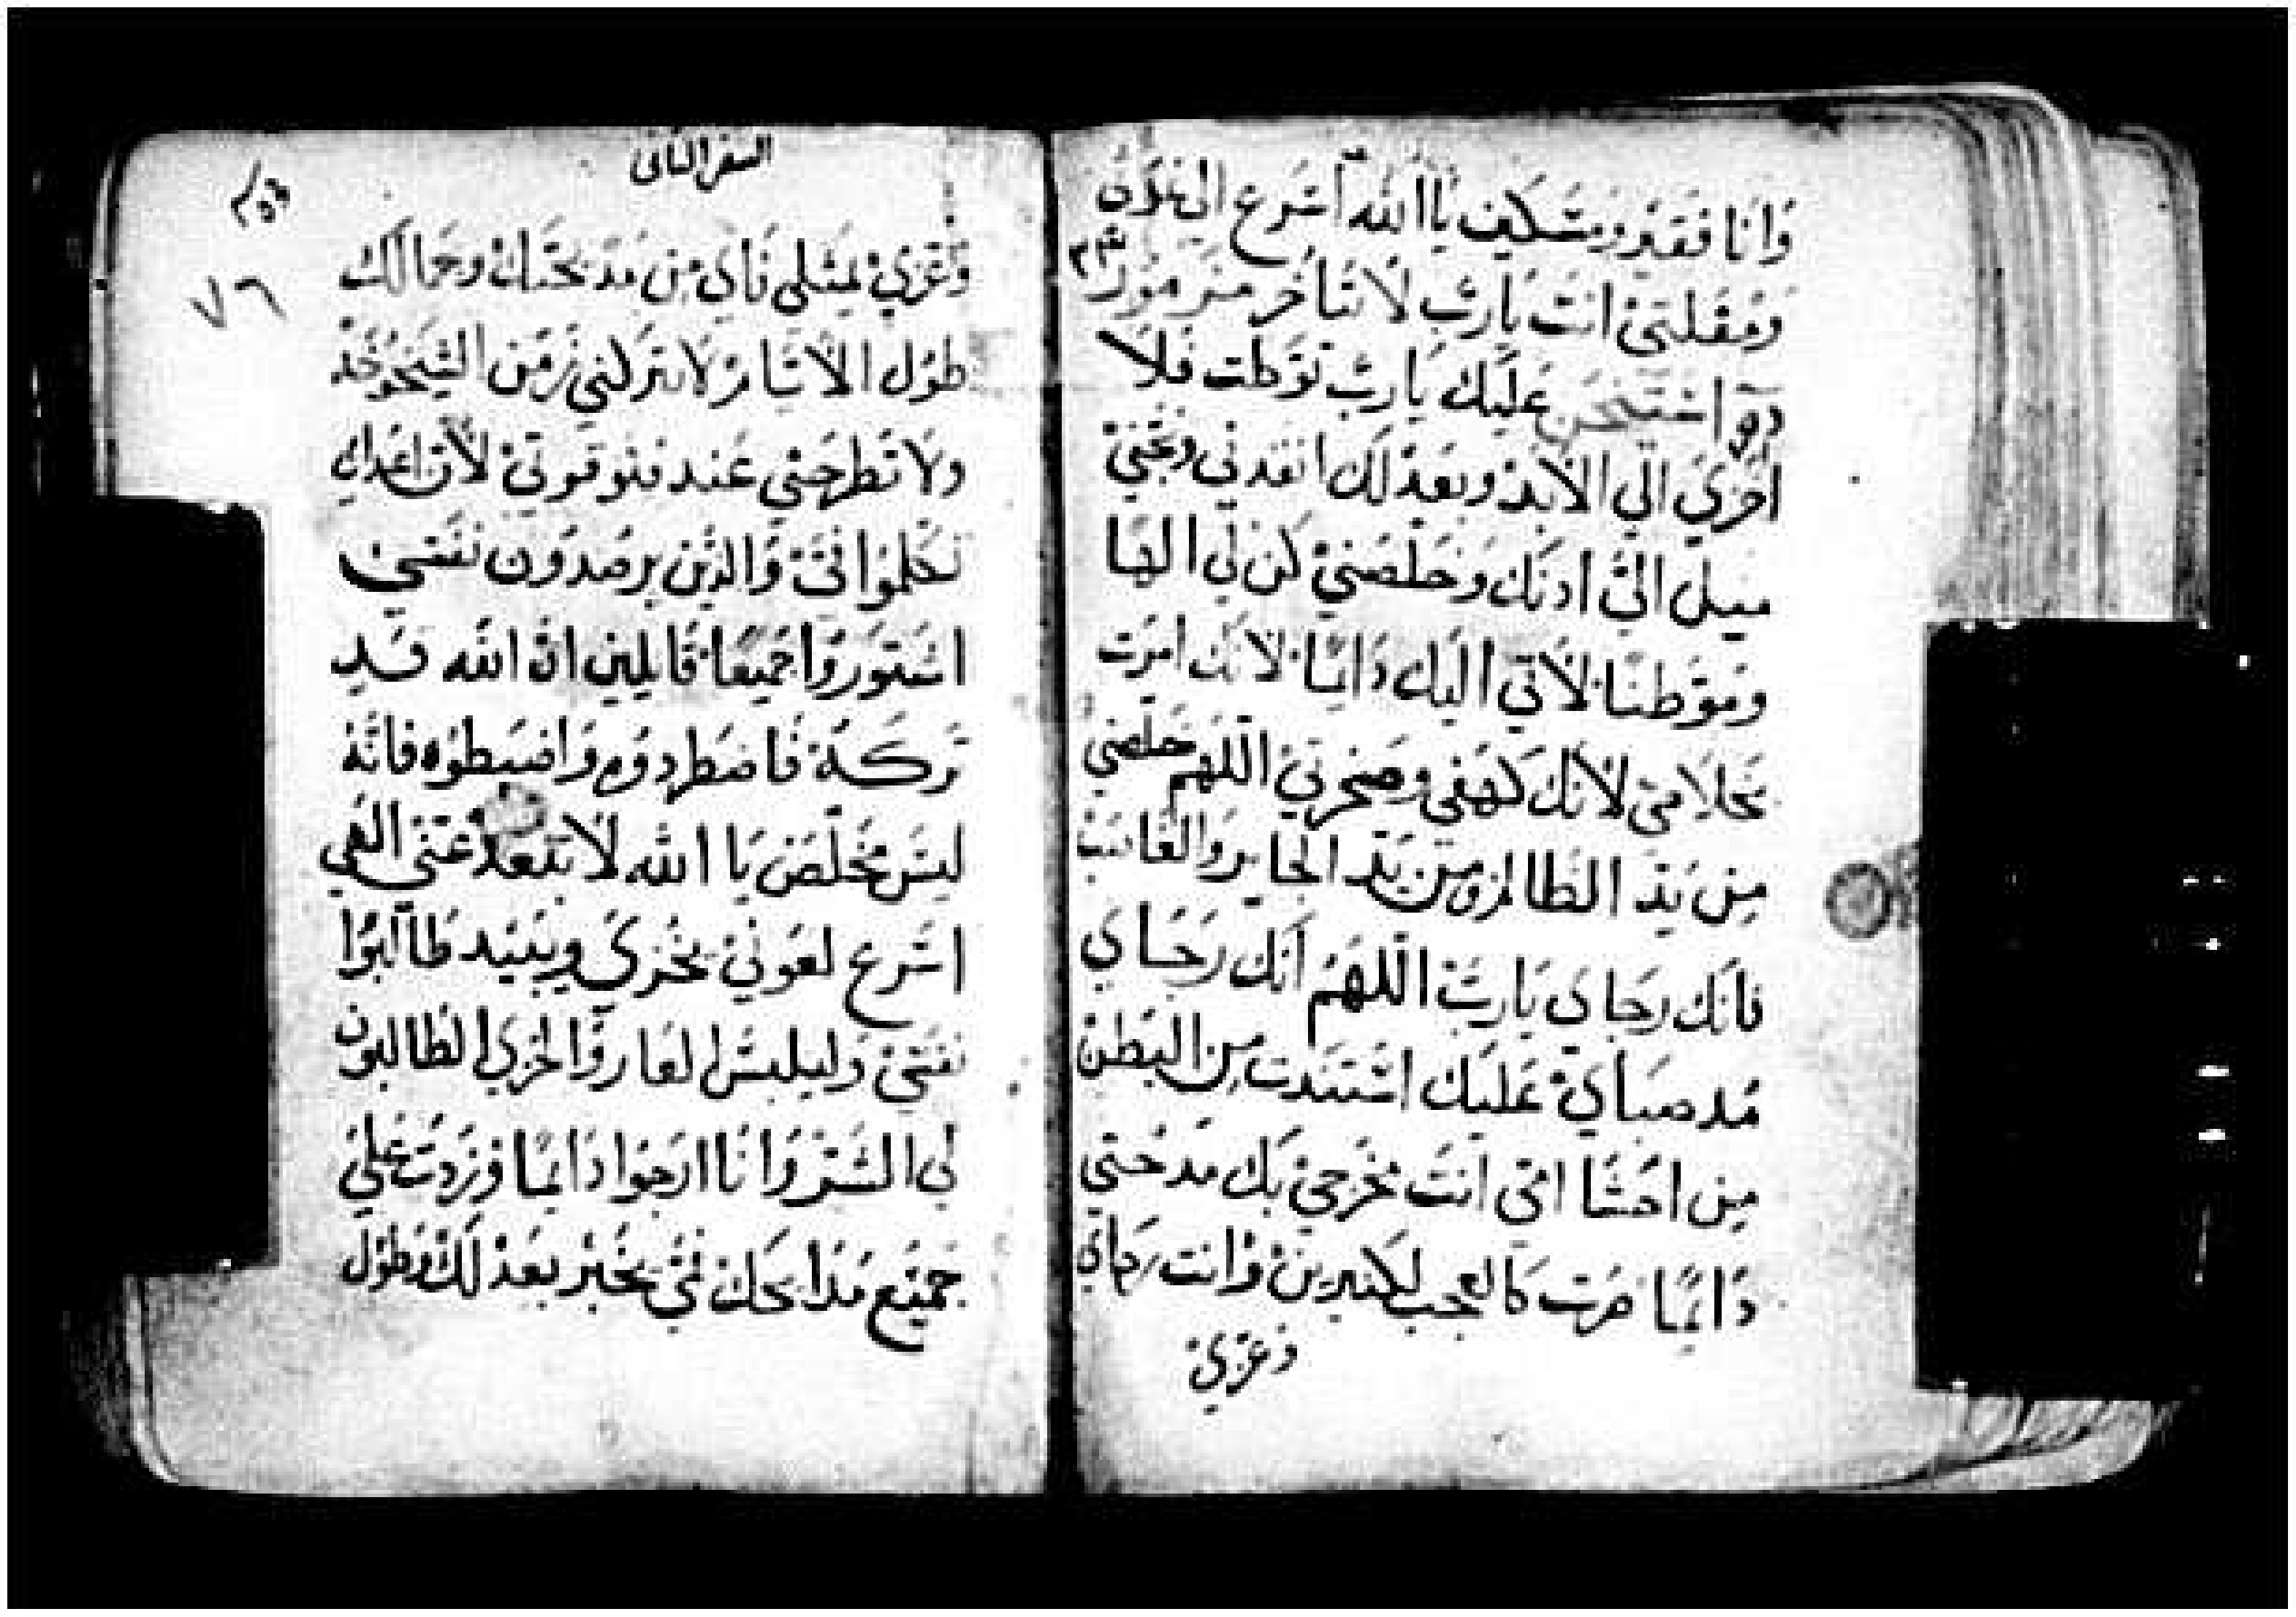 وَانَا فقدوبتسكين يَا الله اسَرع الي عَوني
ومُقلتي انتَ يَارب لا تتأخر مزمور
اسْتنحن عَليَك يَارب توكلت فلا
اخزيَ الي الابد وبعَدلك انقدني ونجني
ميل اليَّ ادنَك وَخلصَني كن لي الهَا
وموَطنًا لاتي اليك دَايمًا لانك امرَت
بخلاصي لانك كهَفي وصخرتي اللهم خلصني
مِن يَد الظالم ومن يَد الجاير وَالغَاصب
فانك رجاي يَاربّ اللهُم انك رَجَاي
مُد صباي عَليك استَندت من البَطن
مِن احَشَا امي انتَ مخرجي بَك مَدحَتي
دَايمًا صرَت كالعجب لكثيرين وَانت رجاي
وَعزي
السفر الثاني
٧٦
وَعزي ليمتلي فاي مِن مَدحتَك وجمالك
طوُل الايَام لا تتركني زمَن الشيخوخة
ولا تَطرحَني عَند فنو قوتي لأن اعَداي
تكلمُوا فيَّ وَالذين يرصدوُن نفسَي
اشتورَوا جَميعًا قايلين انّ الله قد
تركهَ فاضطردوهُ وَاضبطوُه فانهُ
ليسَ مخلصَ يَا الله لا تبتعدْ عَني الهَي
اسَرع لعَوني يخزي ويبيد طالبوا
نفسَي وليلبسَ العَار وَالخزي الطالبون
لي الشَّر وَانَا ارجَوا دَايمًا وَزدتُ عَلي
جَميَع مَدَايحك فمي يخبر بعَدلكَ وَطوُل